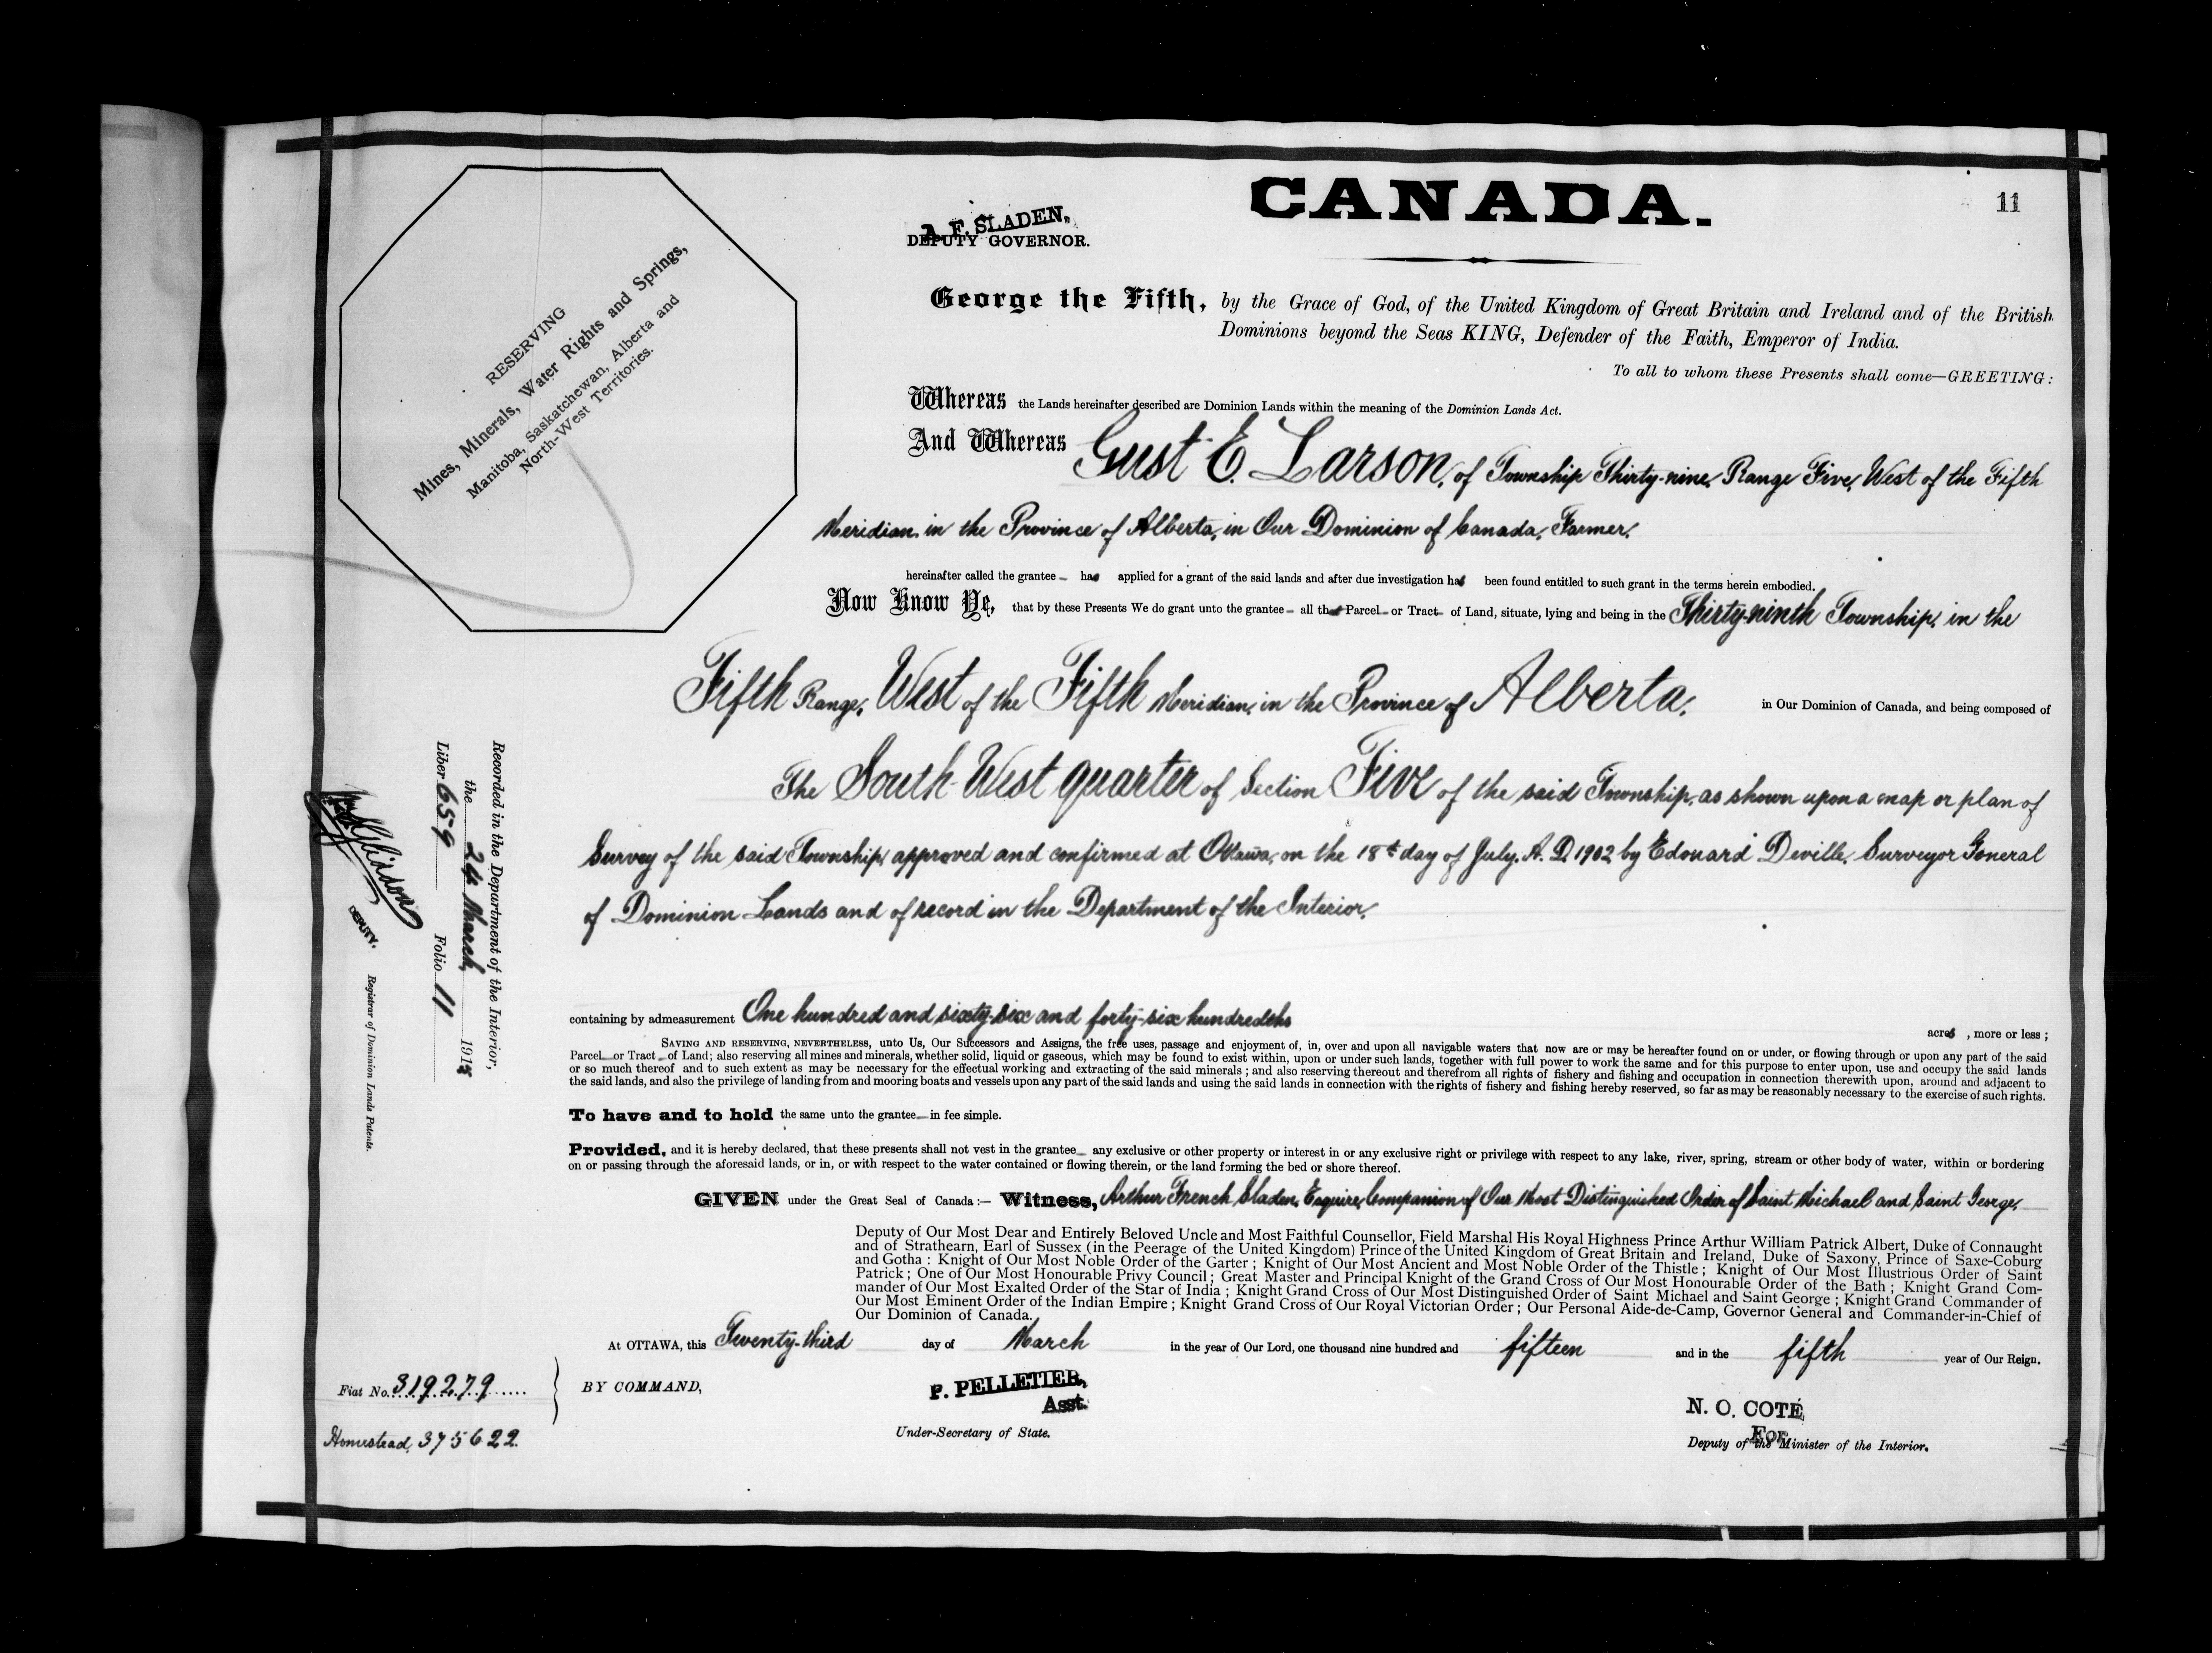 CANADA.
11
A. F. SLADEN,
DEPUTY GOVERNOR.
RESERVING
Mines, Minerals, Water Rights and Springs,
Manitoba, Saskatchewan, Alberta and
North-West Territories.
George the Fifth, by the Grace of God, of the United Kingdom of Great Britain and Ireland and of the British
Dominions beyond the Seas KING, Defender of the Faith, Emperor of India.
To all to whom these Presents shall come—GREETING:
Whereas the Lands hereinafter described are Dominion Lands within the meaning of the Dominion Lands Act.
And Whereas Gust E. Larson, of Township Thirty-nine, Range Five, West of the Fifth
Meridian, in the Province of Alberta, in Our Dominion of Canada, Farmer,
hereinafter called the grantee has applied for a grant of the said lands and after due investigation has been found entitled to such grant in the terms herein embodied.
Now Know Ye, that by these Presents We do grant unto the grantee all that Parcel or Tract of Land, situate, lying and being in the Thirty-ninth Township, in the
Fifth Range, West of the Fifth Meridian, in the Province of Alberta, in Our Dominion of Canada, and being composed of
The South-West quarter of Section Five of the said Township, as shown upon a map or plan of
Survey of the said Township, approved and confirmed at Ottawa, on the 18th day of July, A. D. 1902 by Edouard Deville, Surveyor General
of Dominion Lands and of record in the Department of the Interior,
containing by admeasurement One hundred and sixty-six and forty-six hundredths
acres , more or less ;
SAVING AND RESERVING, NEVERTHELESS, unto Us, Our Successors and Assigns, the free uses, passage and enjoyment of, in, over and upon all navigable waters that now are or may be hereafter found on or under, or flowing through or upon any part of the said
Parcel or Tract of Land; also reserving all mines and minerals, whether solid, liquid or gaseous, which may be found to exist within, upon or under such lands, together with full power to work the same and for this purpose to enter upon, use and occupy the said lands
or so much thereof and to such extent as may be necessary for the effectual working and extracting of the said minerals ; and also reserving thereout and therefrom all rights of fishery and fishing and occupation in connection therewith upon, around and adjacent to
the said lands, and also the privilege of landing from and mooring boats and vessels upon any part of the said lands and using the said lands in connection with the rights of fishery and fishing hereby reserved, so far as may be reasonably necessary to the exercise of such rights.
To have and to hold the same unto the grantee in fee simple.
Provided, and it is hereby declared, that these presents shall not vest in the grantee any exclusive or other property or interest in or any exclusive right or privilege with respect to any lake, river, spring, stream or other body of water, within or bordering
on or passing through the aforesaid lands, or in, or with respect to the water contained or flowing therein, or the land forming the bed or shore thereof.
GIVEN under the Great Seal of Canada :— Witness, Arthur French Sladen, Esquire, Companion of Our Most Distinguished Order of Saint Michael and Saint George,
Deputy of Our Most Dear and Entirely Beloved Uncle and Most Faithful Counsellor, Field Marshal His Royal Highness Prince Arthur William Patrick Albert, Duke of Connaught
and of Strathearn, Earl of Sussex (in the Peerage of the United Kingdom) Prince of the United Kingdom of Great Britain and Ireland, Duke of Saxony, Prince of Saxe-Coburg
and Gotha : Knight of Our Most Noble Order of the Garter ; Knight of Our Most Ancient and Most Noble Order of the Thistle ; Knight of Our Most Illustrious Order of Saint
Patrick ; One of Our Most Honourable Privy Council ; Great Master and Principal Knight of the Grand Cross of Our Most Honourable Order of the Bath ; Knight Grand Com-
mander of Our Most Exalted Order of the Star of India ; Knight Grand Cross of Our Most Distinguished Order of Saint Michael and Saint George ; Knight Grand Commander of
Our Most Eminent Order of the Indian Empire ; Knight Grand Cross of Our Royal Victorian Order ; Our Personal Aide-de-Camp, Governor General and Commander-in-Chief of
Our Dominion of Canada.
At OTTAWA, this Twenty-third day of March in the year of Our Lord, one thousand nine hundred and fifteen and in the fifth year of Our Reign.
BY COMMAND,
P. PELLETIER,
Asst.
Under-Secretary of State.
N. O. COTÉ,
For
Deputy of the Minister of the Interior.
Fiat No. 319279
Homestead, 375622.
Recorded in the Department of the Interior,
the 24 March, 1915
Liber 659 Folio 11
DEPUTY.
Registrar of Dominion Lands Patents.